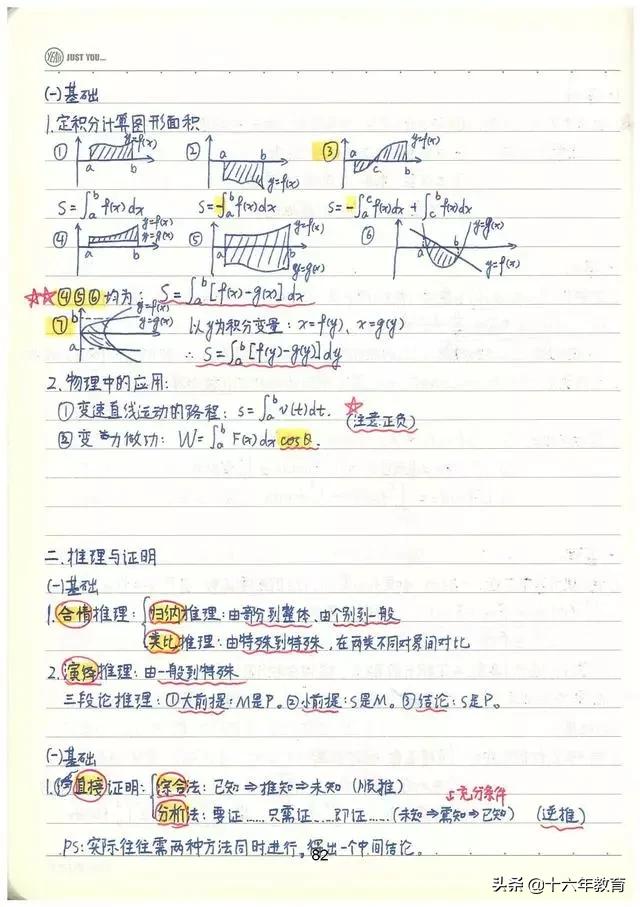 YEAH JUST YOU...
(一)基础
1.定积分计算图形面积
① y=f(x) a b
② a b y=f(x)
③ a c b y=f(x)
S=∫ₐᵇ f(x)dx S=-∫ₐᵇ f(x)dx S=-∫ₐᶜ f(x)dx + ∫꜀ᵇ f(x)dx
④ y=f(x) y=g(x) a b
⑤ y=f(x) a b y=g(x)
⑥ y=g(x) a b y=f(x)
☆☆④⑤⑥均为: S=∫ₐᵇ[f(x)-g(x)]dx
⑦ b a y=f(x) y=g(x) 以y为积分变量: x=f(y)、x=g(y)
∴ S=∫ₐᵇ[f(y)-g(y)]dy
2.物理中的应用:
①变速直线运动的路程: s=∫ₐᵇ v(t)dt. ☆(注意正负)
②变力做功: W=∫ₐᵇ F(x)dx cosθ.
二.推理与证明
(一)基础
1.合情推理: 归纳推理:由部分到整体、由个别到一般
类比推理:由特殊到特殊,在两类不同对象间对比
2.演绎推理:由一般到特殊
三段论推理:①大前提:M是P。②小前提:S是M。③结论:S是P。
(一)基础
1.直接证明: 综合法:已知⇒推知⇒未知 (顺推)
充分条件
分析法:要证……只需证……即证……(未知⇒需知⇒已知) (逆推)
PS:实际往往需两种方法同时进行,得出一个中间结论。
82
头条 @十六年教育